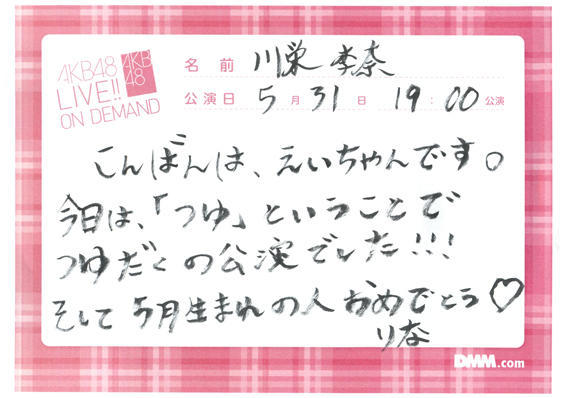 AKB48
LIVE!!
ON DEMAND
AKB
48
名前 川栄 李奈
公演日 5月31日 19:00公演
こんばんは、えいちゃんです。
今日は、「つゆ」ということで
つゆだくの公演でした!!!
そして5月生まれの人おめでとう♡
りな
DMM.com